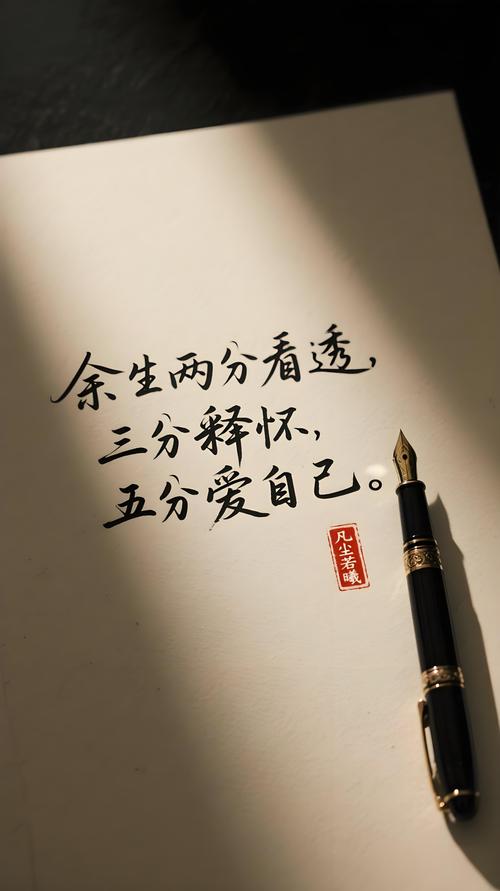 余生两分看透，
三分释怀，
五分爱自己。
凡尘若曦